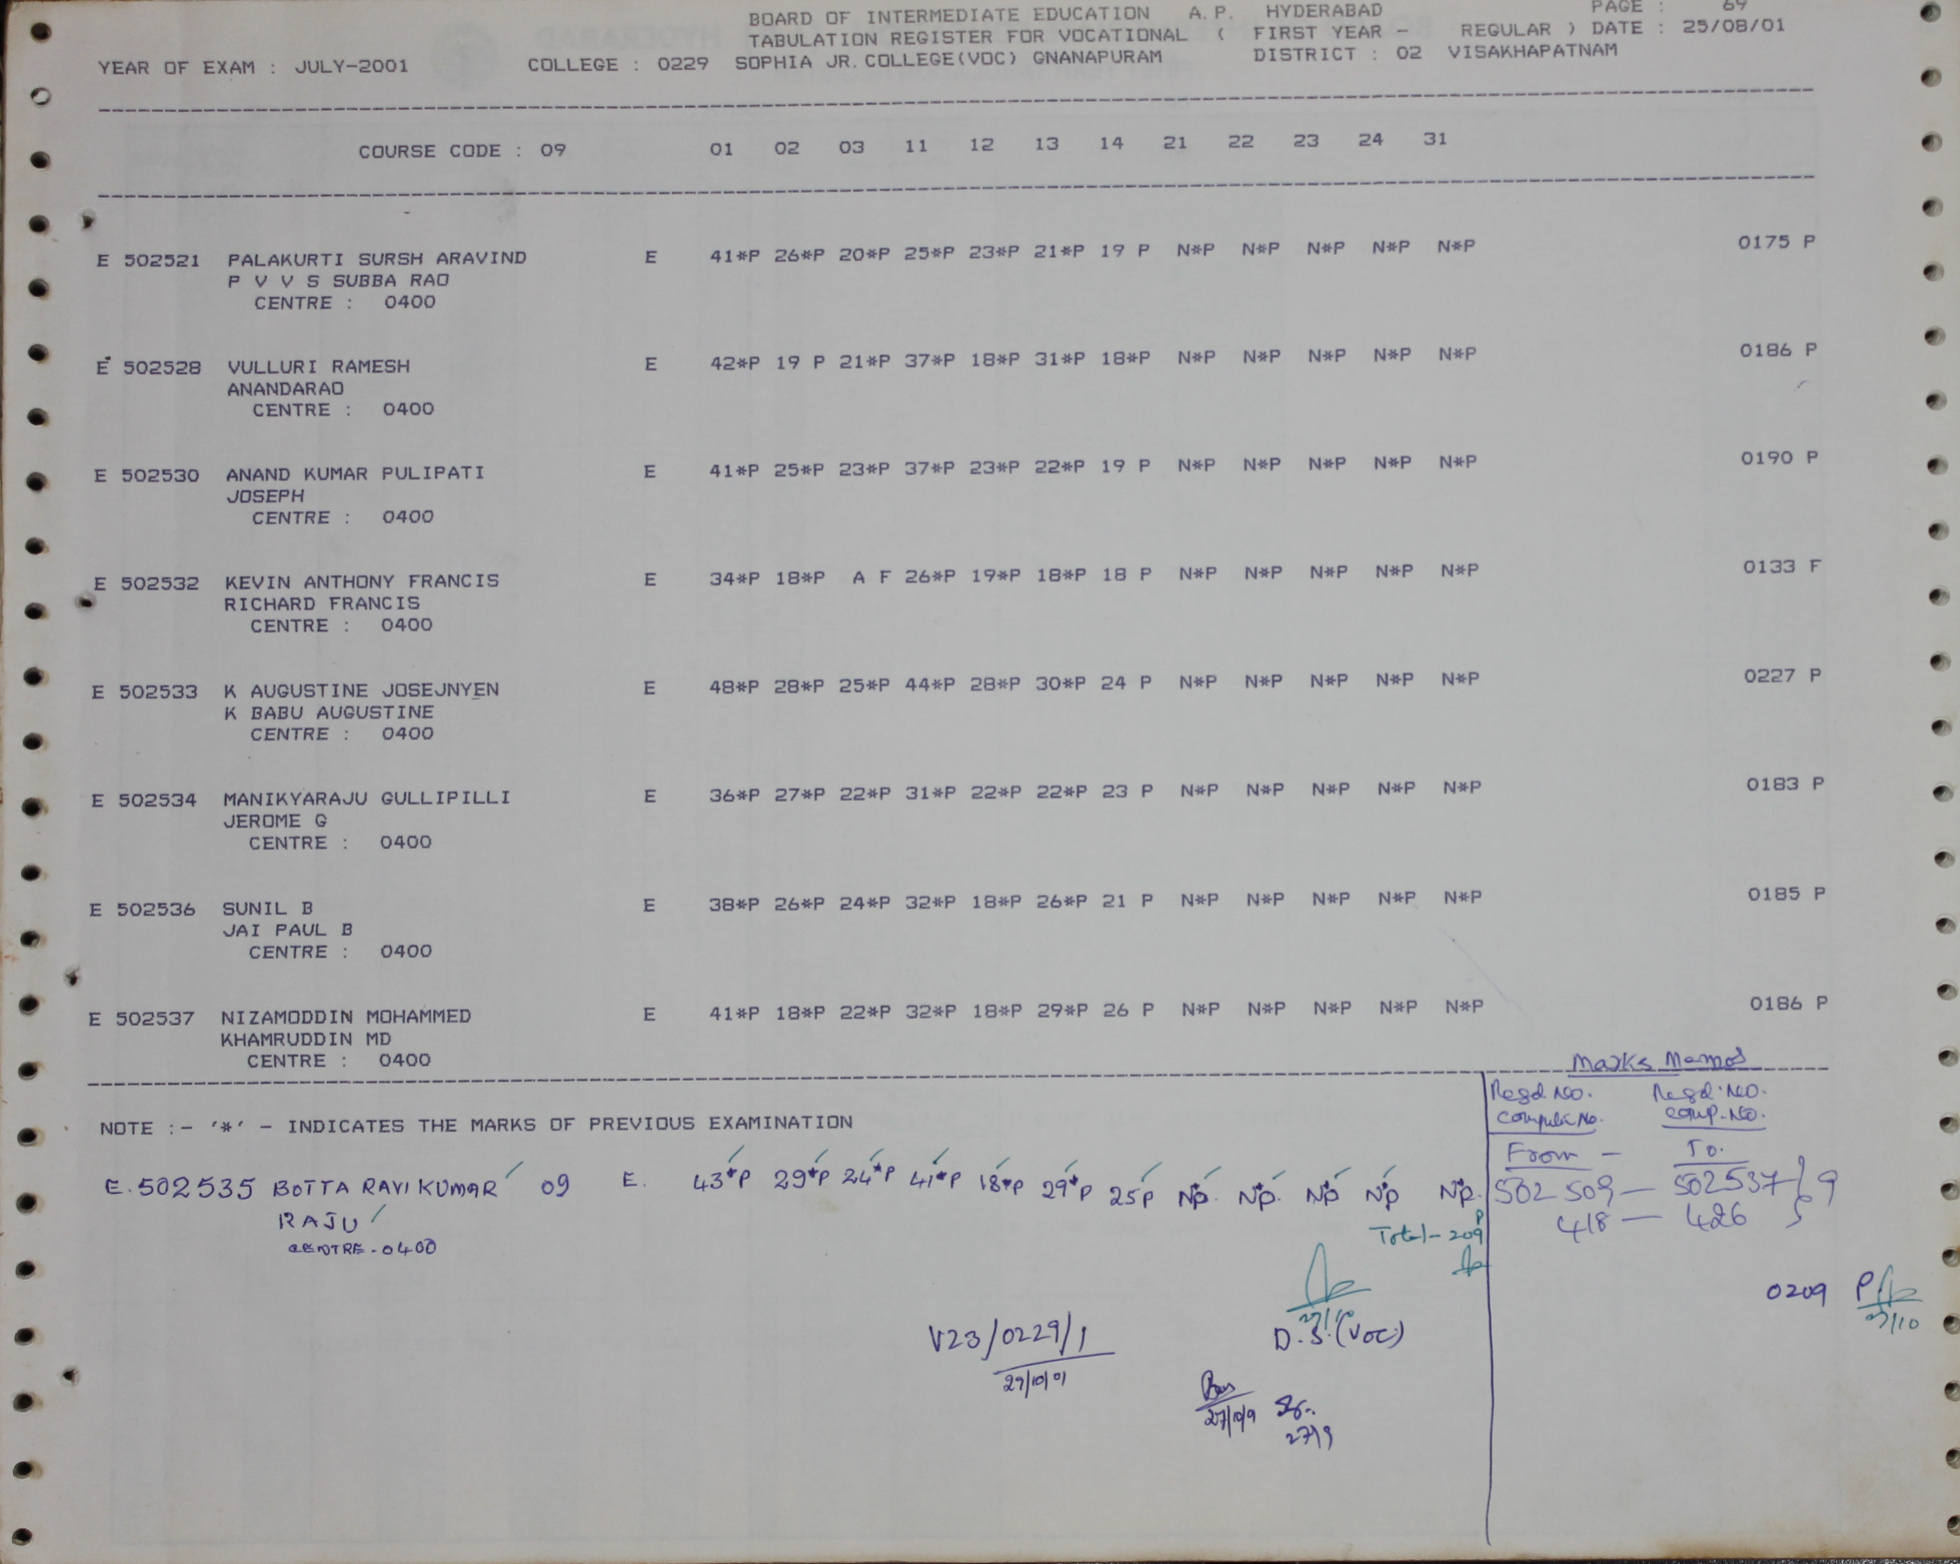 BOARD OF INTERMEDIATE EDUCATION A.P. HYDERABAD PAGE : 69
TABULATION REGISTER FOR VOCATIONAL ( FIRST YEAR - REGULAR ) DATE : 25/08/01
YEAR OF EXAM : JULY-2001 COLLEGE : 0229 SOPHIA JR.COLLEGE(VOC) GNANAPURAM DISTRICT : 02 VISAKHAPATNAM
COURSE CODE : 09 01 02 03 11 12 13 14 21 22 23 24 31
E 502521 PALAKURTI SURSH ARAVIND E 41*P 26*P 20*P 25*P 23*P 21*P 19 P N*P N*P N*P N*P N*P 0175 P
P V V S SUBBA RAO
CENTRE : 0400
E 502528 VULLURI RAMESH E 42*P 19 P 21*P 37*P 18*P 31*P 18*P N*P N*P N*P N*P N*P 0186 P
ANANDARAO
CENTRE : 0400
E 502530 ANAND KUMAR PULIPATI E 41*P 25*P 23*P 37*P 23*P 22*P 19 P N*P N*P N*P N*P N*P 0190 P
JOSEPH
CENTRE : 0400
E 502532 KEVIN ANTHONY FRANCIS E 34*P 18*P A F 26*P 19*P 18*P 18 P N*P N*P N*P N*P N*P 0133 F
RICHARD FRANCIS
CENTRE : 0400
E 502533 K AUGUSTINE JOSEJNYEN E 48*P 28*P 25*P 44*P 28*P 30*P 24 P N*P N*P N*P N*P N*P 0227 P
K BABU AUGUSTINE
CENTRE : 0400
E 502534 MANIKYARAJU GULLIPILLI E 36*P 27*P 22*P 31*P 22*P 22*P 23 P N*P N*P N*P N*P N*P 0183 P
JEROME G
CENTRE : 0400
E 502536 SUNIL B E 38*P 26*P 24*P 32*P 18*P 26*P 21 P N*P N*P N*P N*P N*P 0185 P
JAI PAUL B
CENTRE : 0400
E 502537 NIZAMODDIN MOHAMMED E 41*P 18*P 22*P 32*P 18*P 29*P 26 P N*P N*P N*P N*P N*P 0186 P
KHAMRUDDIN MD
CENTRE : 0400
Marks Memos
Regd.No. Regd.No.
Comp.No.
NOTE :- '*' - INDICATES THE MARKS OF PREVIOUS EXAMINATION
From - To.
E.502535 BOTTA RAVI KUMAR 09 E. 43*P 29*P 24*P 41*P 18*P 29*P 25P N*P. N*P. N*P N*P N*P.
502509 - 502537 } 9
RAJU
418 - 426
CENTRE - 0400
Total - 209 P
0209 P
27/10
V23/0229/1
29/10/01
27/10
D.S.(VOC)
27/9